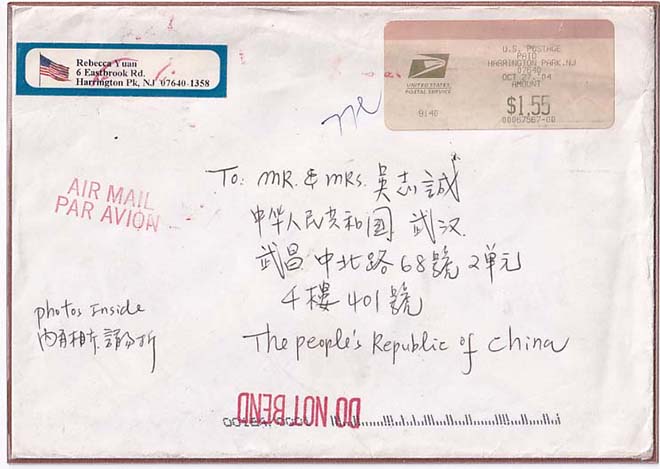 Rebecca Yuan
6 Eastbrook Rd.
Harrington Pk, NJ 07640-1358
UNITED STATES
POSTAL SERVICE
9140
U.S. POSTAGE
PAID
HARRINGTON PARK, NJ
07640
OCT 27, 04
AMOUNT
$1.55
00067567-00
AIR MAIL
PAR AVION
To: MR. & MRS. 吴志誠
中华人民共和国 武汉
武昌 中北路68號 2单元
4樓 401號
The people's Republic of China
photos Inside
內有相片 請勿折
DO NOT BEND